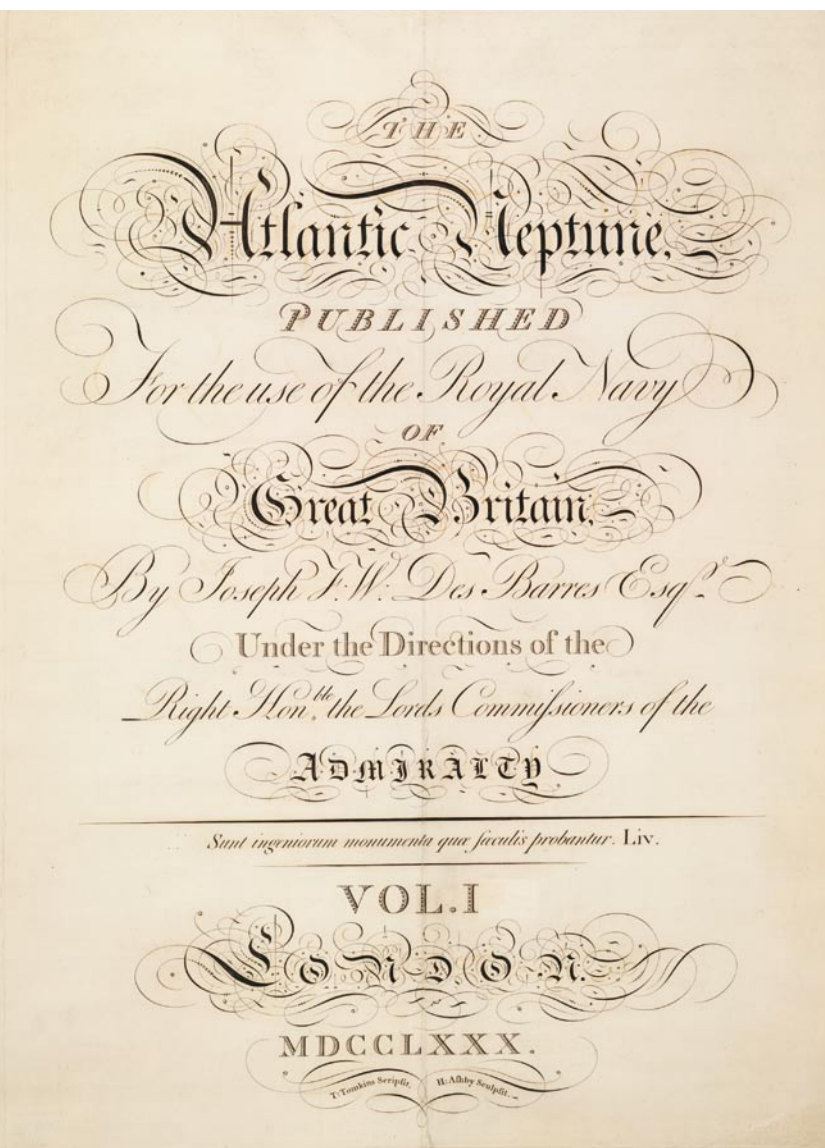 THE
Atlantic Neptune,
PUBLISHED
For the use of the Royal Navy
OF
Great Britain,
By Joseph F. W. Des Barres Esqr.
Under the Directions of the
Right Honble. the Lords Commiſsioners of the
ADMIRALTY
Sunt ingeniorum monumenta quæ ſæculis probantur. Liv.
VOL. I
LONDON.
MDCCLXXX.
T: Tomkins Scripſit. H: Aſhby Sculpſit.